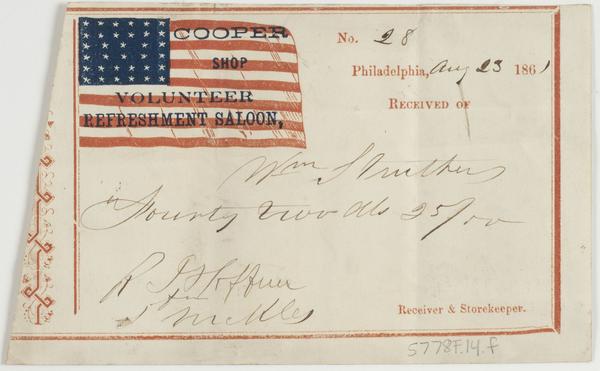 COOPER
SHOP
VOLUNTEER
REFRESHMENT SALOON,
No. 28
Philadelphia, Aug 23 1861
RECEIVED OF
Wm Struthers
Fourty two dls 25/00
Receiver & Storekeeper.
5778.F.14.f